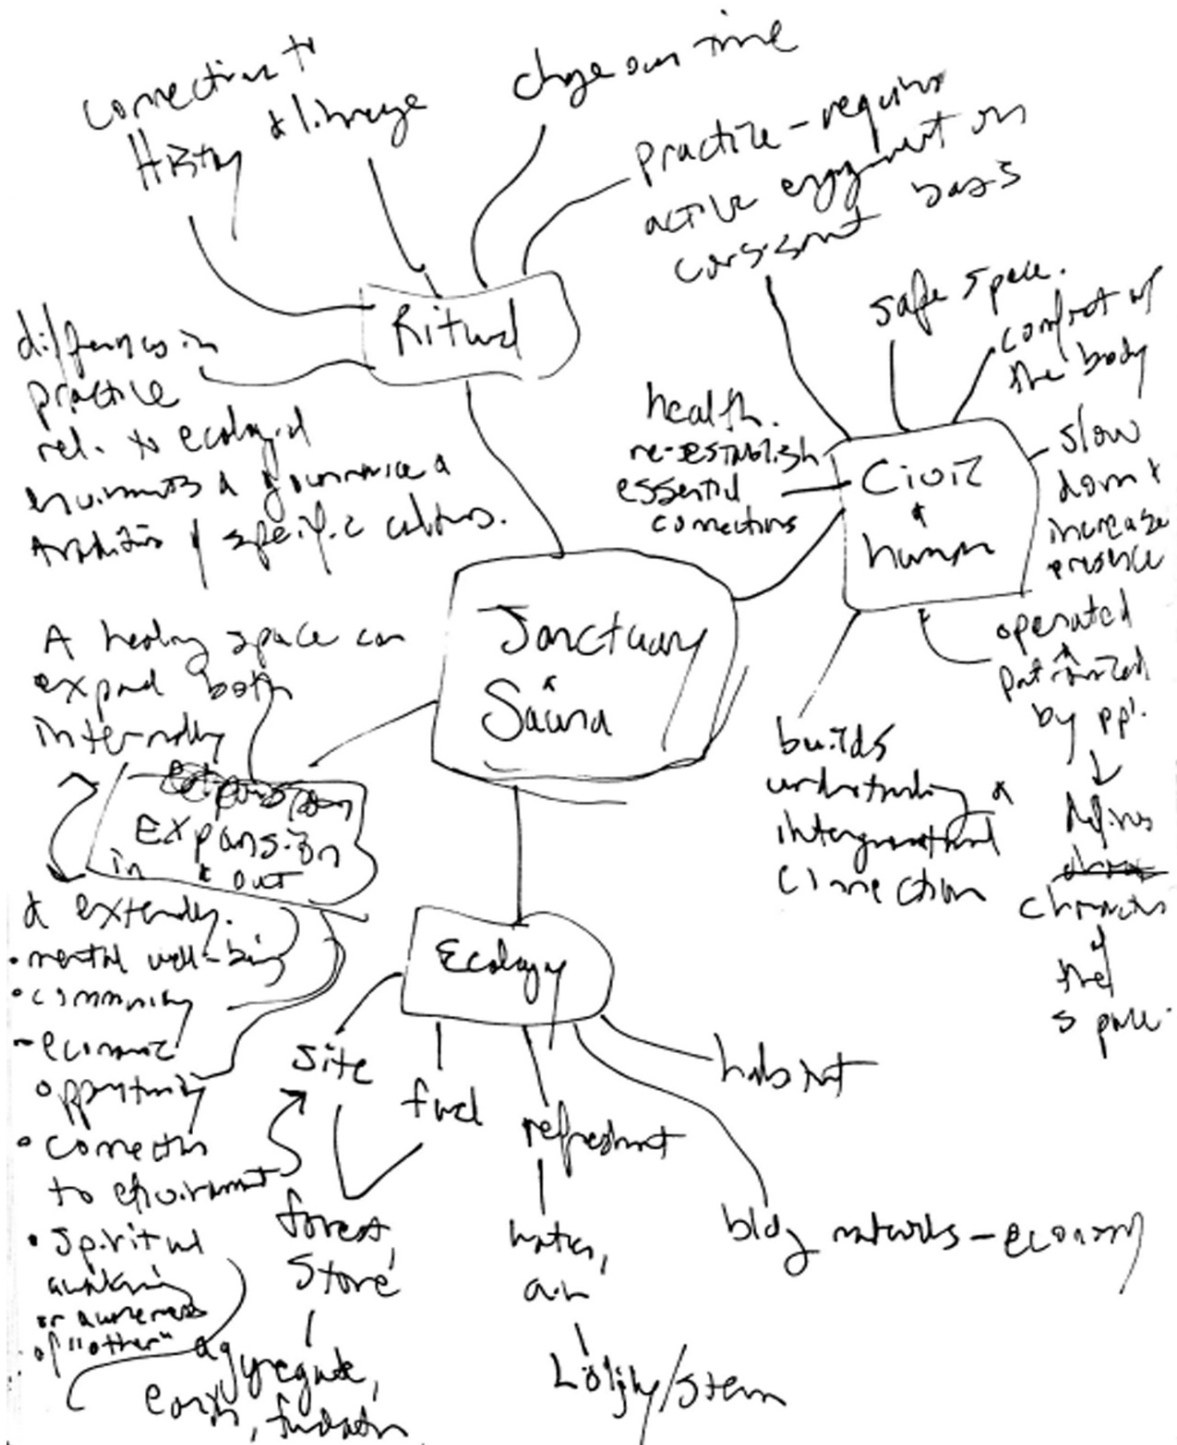 connection to
History
& lineage
change over time
practice - requires
active engagement on
consistent basis
Ritual
differences in
practice
rel. to ecological
environments & governance &
traditions of specific cultures.
safe space.
comfort of
the body
health.
re-establish
essential
connections
Civic
&
human
slow
down &
increase
presence
operated
&
patronized
by ppl.
defines
character
of
the
space.
builds
understanding &
intergenerational
connection
Sanctuary
&
Sauna
A healing space can
expand both
internally
Expansion
in & out
& externally.
• mental well-being
• community
- economic
opportunity
• connection
to environment
• Spiritual
awakening
or awareness
of "other"
Ecology
site
fuel
refreshment
habitat
bldg networks - economy
forest,
stone
water,
air
aggregate,
earth,
Löyly/steam